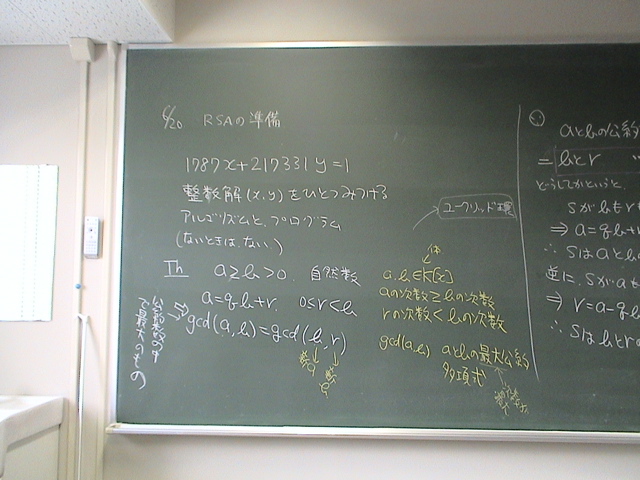 6/20 RSAの準備
1787x+217331y=1
整数解(x,y)をひとつみつける
アルゴリズムと、プログラム
(ないときは、ない)
ユークリッド環
Th a≥b>0 自然数
a=qb+r 0≤r<b
gcd(a,b)=gcd(b,r)
公約数の中
で最大のもの
体
a,b∈K[x]
aの次数≥bの次数
rの次数<bの次数
gcd(a,b) aとbの最大公約
多項式
aとbの公約
=bとr
どうしてかというと、
Sがbとr
⇒a=qb+
∴Sはaとb
逆に、Sがa
⇒r=a-qb
∴Sはbとr